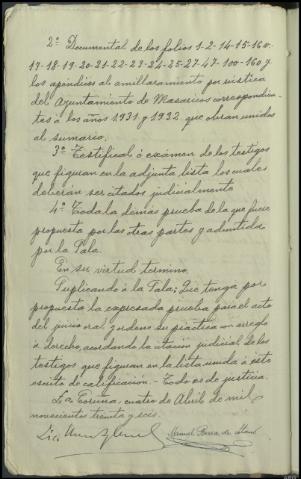 2º Documental de los folios 1-2-14-15-160.
17-18-19-20-21-22-23-24-25-27-47-100-160 y
los apéndices al amillaramiento por rústica
del Ayuntamiento de Mazaricos correspondien-
tes a los años 1931 y 1932 que obran unidos
al sumario.
3º Testifical ó examen de los testigos
que figuran en la adjunta lista los cuales
deberán ser citados judicialmente
4º Toda la demás prueba de la que fuere
propuesta por las otras partes y admitida
por la Sala.
En su virtud termino
Suplicando a la Sala; Que tenga por
propuesta la expresada prueba para el acto
del juicio oral y ordene su práctica con arreglo
á derecho, acordando la citación judicial de los
testigos que figuran en la lista unida á éste
escrito de calificación. Todo es de justicia.
La Coruña, cuatro de Abril de mil
novecientos treinta y seis.
Lic. Manuel